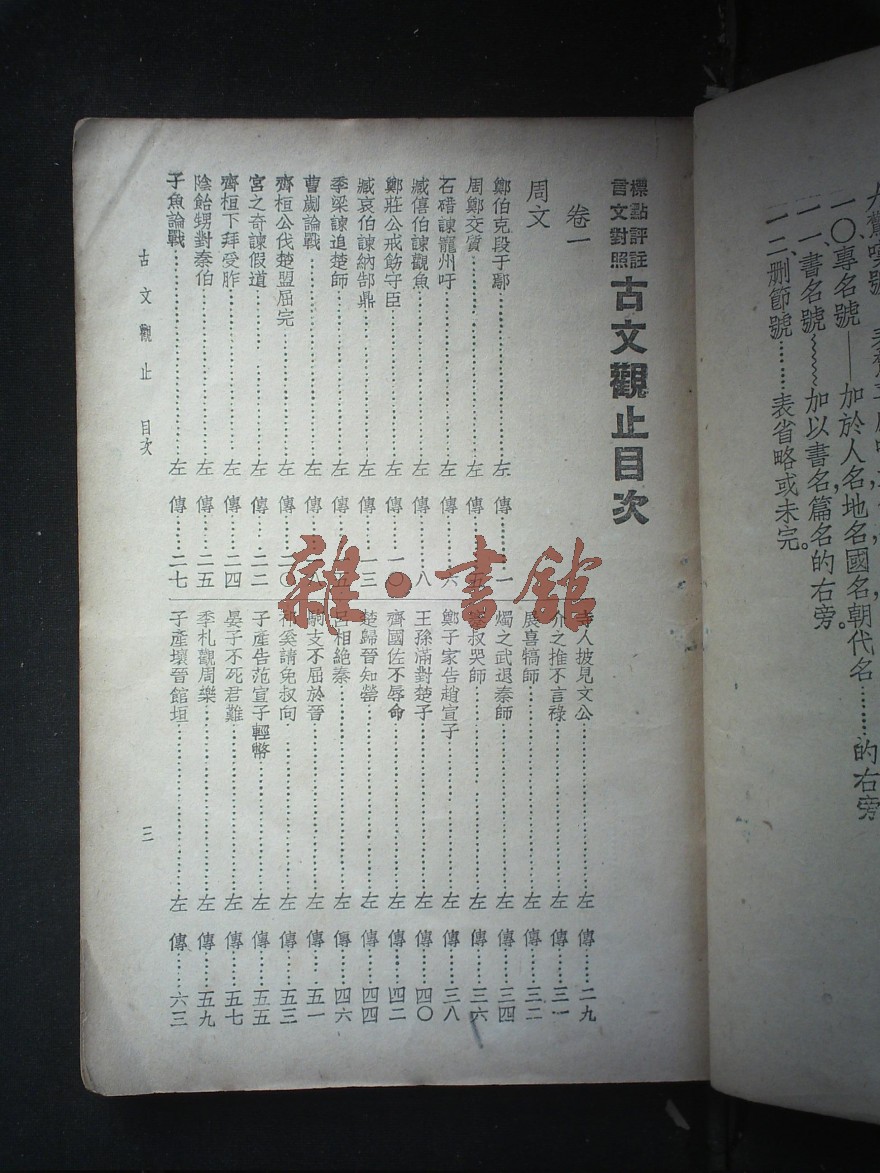 一〇、專名號——加於人名地名國名朝代名………的右旁。
一一、書名號﹏﹏加以書名篇名的右旁。
一二、刪節號……表省略或未完。
標點評註
言文對照
古文觀止目次
卷一
周文
鄭伯克段于鄢……左傳……一
周鄭交質……左傳……五
石碏諫寵州吁……左傳……六
臧僖伯諫觀魚……左傳……八
鄭莊公戒飭守臣……左傳……一〇
臧哀伯諫納郜鼎……左傳……一三
季梁諫追楚師……左傳……五
曹劌論戰……左傳……八
齊桓公伐楚盟屈完……左傳……二〇
宮之奇諫假道……左傳……二二
齊桓下拜受胙……左傳……二四
陰飴甥對秦伯……左傳……二五
子魚論戰……左傳……二七
寺人披見文公……左傳……二九
介之推不言祿……左傳……三一
展喜犒師……左傳……三二
燭之武退秦師……左傳……三四
蹇叔哭師……左傳……三六
鄭子家告趙宣子……左傳……三八
王孫滿對楚子……左傳……四〇
齊國佐不辱命……左傳……四二
楚歸晉知罃……左傳……四四
呂相絕秦……左傳……四六
駒支不屈於晉……左傳……五一
祁奚請免叔向……左傳……五三
子產告范宣子輕幣……左傳……五五
晏子不死君難……左傳……五七
季札觀周樂……左傳……五九
子產壞晉館垣……左傳……六三
古文觀止 目次
三
雜·書館